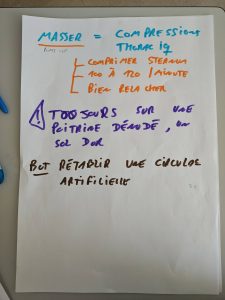 MASSER = COMPRESSIONS
THORACIQ
COMPRIMER STERNUM
100 À 120 / MINUTE
BIEN RELACHER
TOUJOURS SUR UNE
POITRINE DÉNUDÉ, UN
SOL DUR
BUT RÉTABLIR UNE CIRCULA°
ARTIFICIELLE